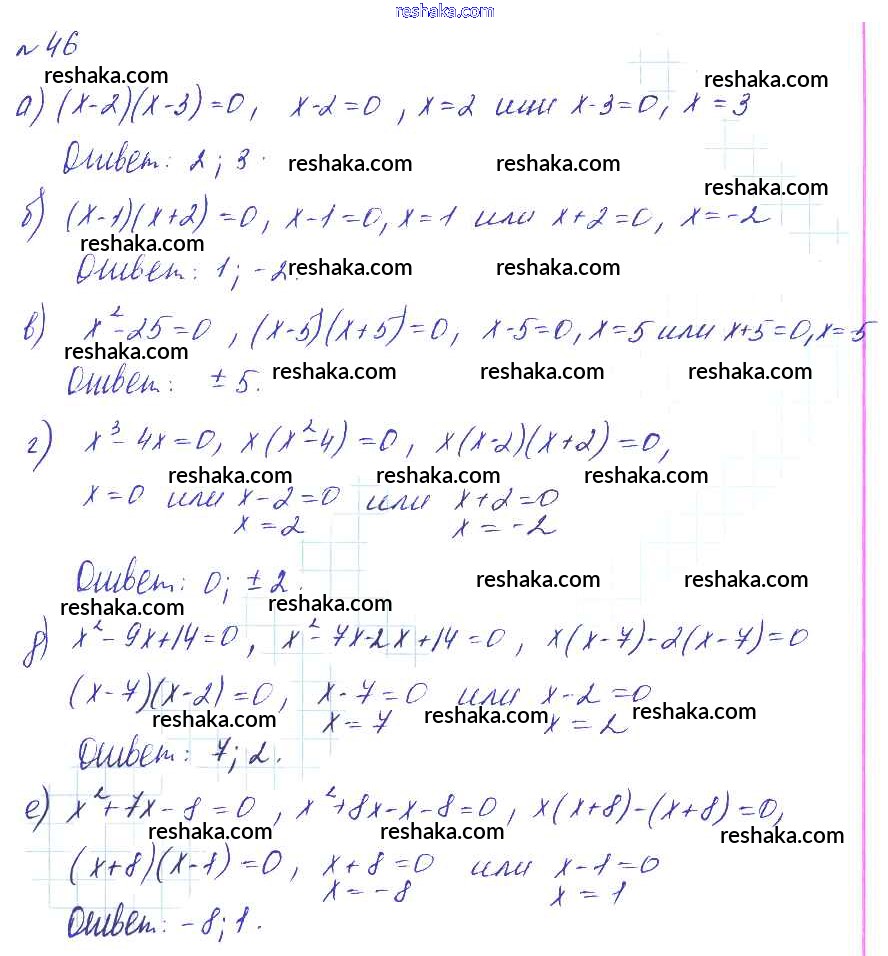 reshaka.com
№46
reshaka.com reshaka.com
а) (x-2)(x-3)=0, x-2=0, x=2 или x-3=0, x=3
Ответ: 2; 3. reshaka.com reshaka.com
reshaka.com
б) (x-1)(x+2)=0, x-1=0, x=1 или x+2=0, x=-2
reshaka.com
Ответ: 1; -2. reshaka.com reshaka.com
в) x²-25=0, (x-5)(x+5)=0, x-5=0, x=5 или x+5=0, x=-5
reshaka.com
Ответ: ±5. reshaka.com reshaka.com reshaka.com
г) x³-4x=0, x(x²-4)=0, x(x-2)(x+2)=0,
reshaka.com reshaka.com reshaka.com
x=0 или x-2=0 или x+2=0
x=2 x=-2
Ответ: 0; ±2. reshaka.com reshaka.com
reshaka.com reshaka.com
д) x²-9x+14=0, x²-7x-2x+14=0, x(x-7)-2(x-7)=0
(x-7)(x-2)=0, x-7=0 или x-2=0
reshaka.com x=7 reshaka.com x=2 reshaka.com
Ответ: 7; 2.
е) x²+7x-8=0, x²+8x-x-8=0, x(x+8)-(x+8)=0,
reshaka.com reshaka.com reshaka.com
(x+8)(x-1)=0, x+8=0 или x-1=0
x=-8 x=1
Ответ: -8; 1.